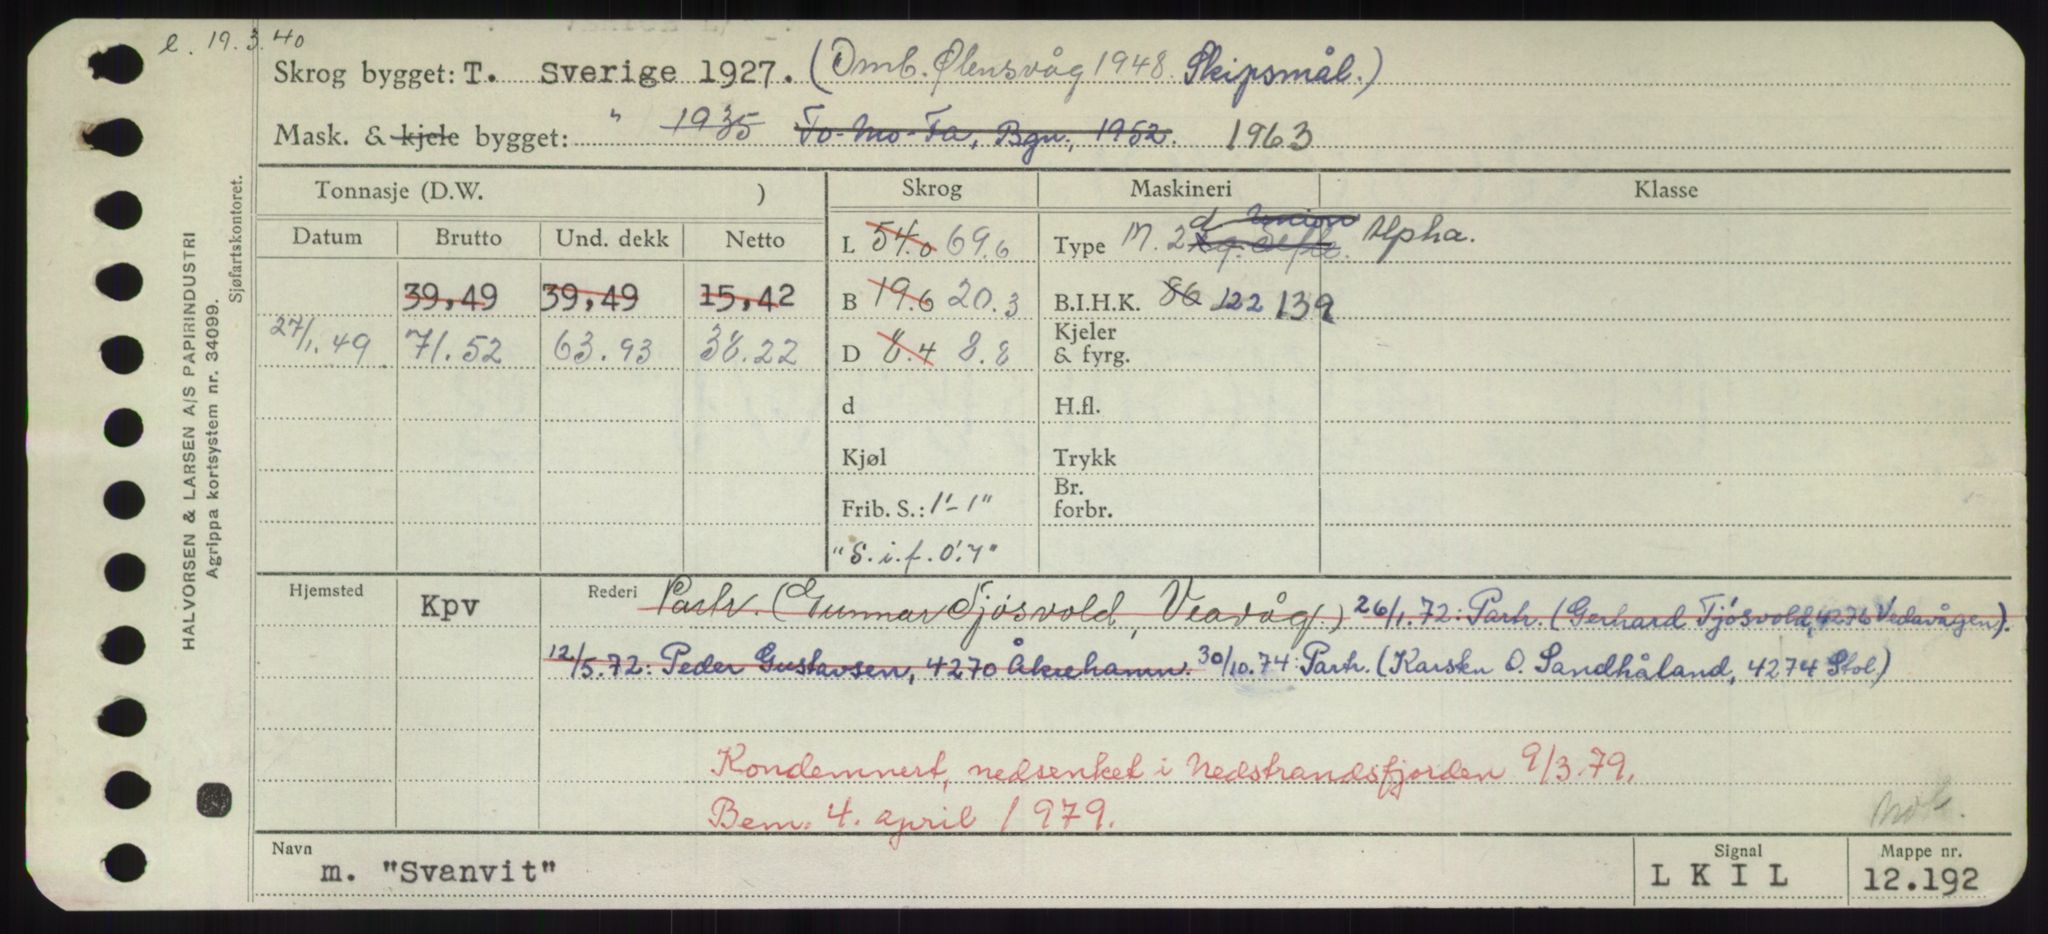 e. 19.3.40
Skrog bygget: T. Sverige 1927. (Omb. Ølensvåg 1948 Skipsmål.)
Mask. & kjele bygget: " 1935 To-Mo-Fa, Bgn., 1952. 1963
Tonnasje (D.W. ) Skrog Maskineri Klasse
Datum Brutto Und. dekk Netto L 54.0 69.6 Type M. 2 Union Alpha.
39,49 39,49 15,42 B 19.6 20.3 B.I.H.K. 86 122 139
27/1.49 71.52 63.93 38.22 D 8.4 8.8 Kjeler & fyrg.
d H.fl.
Kjøl Trykk
Frib. S.: 1'-1" Br. forbr.
"S.i.f. 0'.7"
Hjemsted Kpv Rederi Partr. (Gunnar Tjösvold, Veavåg.) 26/1.72: Partr. (Gerhard Tjósvold, 4276 Vedavågen).
12/5.72: Peder Gustavsen, 4270 Åkrehamn. 30/10.74: Partr. (Karsten O. Sandhåland, 4274 Stol.)
Kondemnert, nedsenket i Nedstrandsfjorden 9/3.79.
Bem. 4. april 1979.
Navn Signal Mappe nr.
m. "Svanvit" L K I L 12.192
HALVORSEN & LARSEN A/S PAPIRINDUSTRI
Agrippa kortsystem nr. 34099.
Sjøfartskontoret.